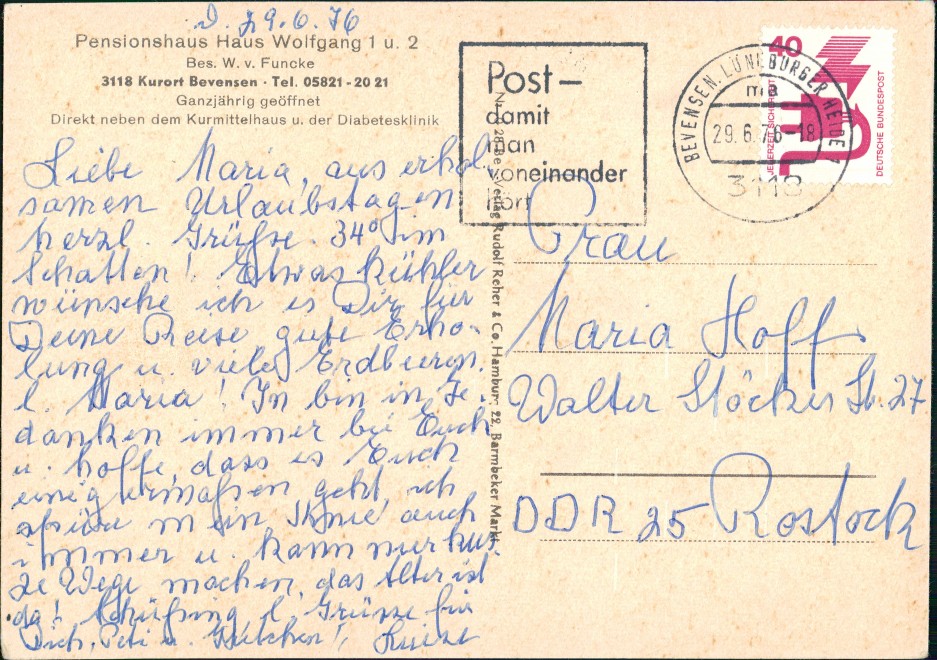 d. 29.6.76
Pensionshaus Haus Wolfgang 1 u. 2
Bes. W. v. Funcke
3118 Kurort Bevensen · Tel. 05821 - 20 21
Ganzjährig geöffnet
Direkt neben dem Kurmittelhaus u. der Diabetesklinik
Liebe Maria, aus erhol-
samen Urlaubstagen
herzl. Grüße. 34° im
Schatten! Etwas kühler
wünsche ich es Dir für
Deine Reise gute Erho-
lung u. viele Erdbeeren.
l. Maria! In bin in Ge-
danken immer bei Euch
u. hoffe, dass es Euch
einigermaßen geht, ich
spüre mein Knie auch
immer u. kann nur kur-
ze Wege machen, das Alter ist
da! l. Grüsse für
Dich, Peti u.
Post –
damit
man
voneinander
hört
BEVENSEN, LÜNEBURGER HEIDE 1
ma
29.6.76-18
3118
40
JEDERZEIT SICHERHEIT
DEUTSCHE BUNDESPOST
Verlag Rudolf Reher & Co. Hamburg 22, Barmbeker Markt
Frau
Maria Hoff
Walter Stöcker Str. 27
DDR 25 Rostock